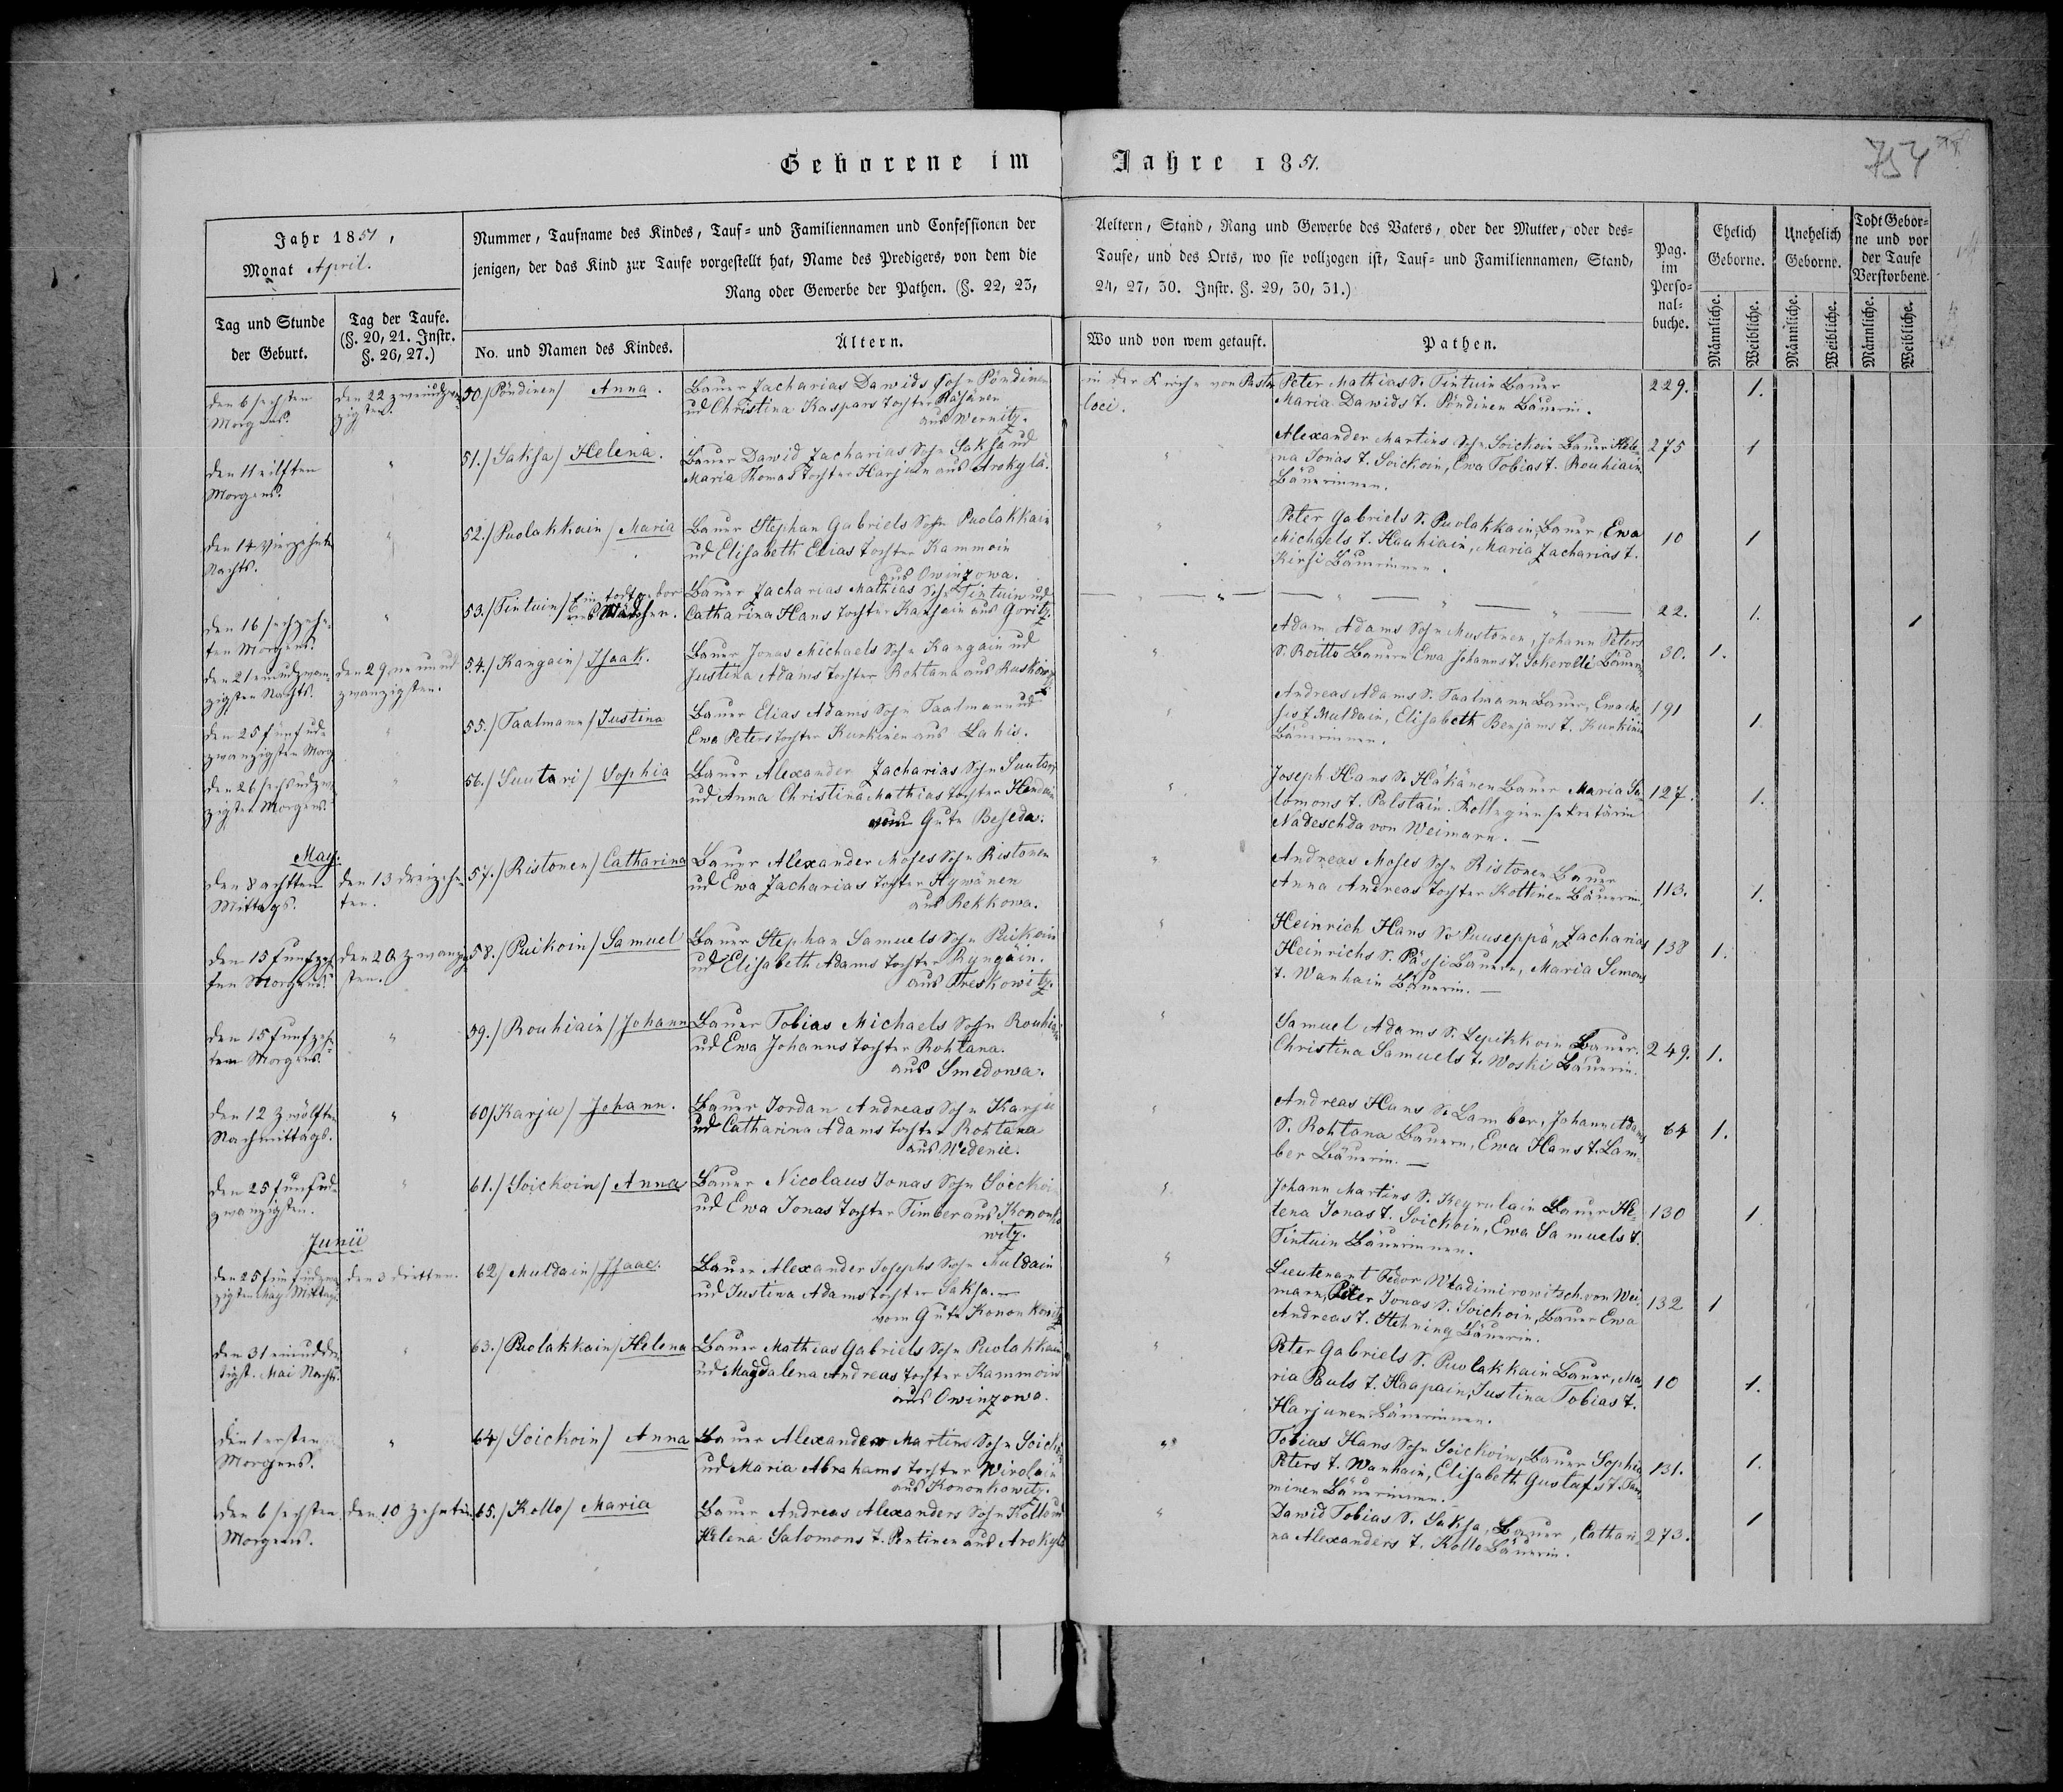 Geborene im Jahre 1851.
754
Jahr 1851,
Monat April.
Nummer, Taufname des Kindes, Tauf- und Familiennamen und Confessionen der Aeltern, Stand, Rang und Gewerbe des Vaters, oder der Mutter, oder des-
jenigen, der das Kind zur Taufe vorgestellt hat, Name des Predigers, von dem die Taufe, und des Orts, wo sie vollzogen ist, Tauf- und Familiennamen, Stand,
Rang oder Gewerbe der Pathen. (§. 22, 23, 24, 27, 30. Instr. §. 29, 30, 31.)
Pag.
im
Perso-
nal-
buche.
Ehelich
Geborne.
Unehelich
Geborne.
Todt Gebor-
ne und vor
der Taufe
Verstorbene.
Tag und Stunde
der Geburt.
Tag der Taufe.
(§. 20, 21. Instr.
§. 26, 27.)
No. und Namen des Kindes.
Ältern.
Wo und von wem getauft.
Pathen.
Männliche.
Weibliche.
Männliche.
Weibliche.
Männliche.
Weibliche.
den 6 sechsten
Morgens.
den 22 zweiudzwan-
zigsten.
50./ Pöndinen/ Anna.
Bauer Zacharias Dawids Sohn Pöndinen
ud Christina Kaspars Tochter Räsänen
aus Wernitz.
in der Kirche von Pastor
loci.
Peter Mathias S. Tintuin Bauer
Maria Dawids T. Pöndinen Bäuerin.
229.
1.
den 11 eilften
Morgens.
"
51./ Saksa/ Helena.
Bauer Dawid Zacharias Sohn Saksa ud
Maria Thomas Tochter Harjuin aus Arokylä.
"
Alexander Martins Sohn Soickoin Bauer Hele-
na Jonas T. Soickoin, Ewa Tobias T. Rouhiain
Bäuerinnen.
275
1
den 14 vierzehnten
Nachts.
"
52./ Puolakkain/ Maria
Bauer Stephan Gabriels Sohn Puolakkain
ud Elisabeth Elias Tochter Kammoin
aus Owinzowa.
"
Peter Gabriels S. Puolakkain, Bauer, Ewa
Michaels T. Hauhiain, Maria Zacharias T.
Kirsi Bäuerinnen.
10
1
den 16 sechszehn-
ten Morgens.
"
53./ Tintuin/ Ein todtgebor
enes Mädchen.
Bauer Zacharias Mathias Sohn Tintuin ud
Catharina Hans Tochter Karhain aus Goritz.
22.
1.
1
den 21 einudzwan-
zigsten Nachts.
den 29 neunund
zwanzigsten.
54./ Kangain/ Isaak.
Bauer Jonas Michaels Sohn Kangain ud
Justina Adams Tochter Rohtana aus Ruskowitz
"
Adam Adams Sohn Mustonen, Johann Peters
S. Roitto Bauern Ewa Johanns T. Sokerolli Bäuerin
30.
1.
den 25 fünfud-
zwanzigsten Morg
"
55./ Taalmann/ Justina
Bauer Elias Adams Sohn Taalmann ud
Ewa Peters Tochter Kurkinen aus Lahis.
"
Andreas Adams S. Taalmann Bauer, Ewa
T. Muldain, Elisabeth Benjams T. Kurkinin
Bäuerinnen.
191
1.
den 26 sechsudzwan
zigsten Morgens.
"
56./ Suutari/ Sophia
Bauer Alexander Zacharias Sohn Suutari
ud Anna Christina Mathias Tochter
vom Gute Beseda.
"
Joseph Hans S. Häkänen Bauer Maria Sa-
lomons T. Palstain. Kollegiensekretärin
Nadeschda von Weimarn. —
127.
1.
May.
den 8 achtten
Mittags.
den 13 dreizehn-
ten.
57./ Ristonen/ Catharina
Bauer Alexander Moses Sohn Ristonen
ud Ewa Zacharias Tochter Hywänen
aus Rekkowa.
"
Andreas Moses Sohn Ristonen Bauer
Anna Andreas Tochter Kottinen Bäuerin,
113.
1.
den 15 funfzehn
ten Morgens.
den 20 zwanzig-
sten.
58./ Puikoin/ Samuel
Bauer Stephan Samuels Sohn Puikoin
ud Elisabeth Adams Tochter Ryngäin.
aus Treskowitz.
"
Heinrich Hans S. Puuseppä, Zacharias
Heinrichs S. Pässi Bauern, Maria Simons
T. Wanhain Bäuerin. —
138
1.
den 15 funfzehn-
ten Morgens.
"
59./ Rouhiain/ Johann
Bauer Tobias Michaels Sohn Rouhiain
ud Ewa Johanns Tochter Rohtana.
aus Smedowa.
"
Samuel Adams S. Lepikkoin Bauer.
Christina Samuels T. Woski Bäuerin.
249.
1.
den 12 zwölften
Nachmittags.
"
60/ Karju/ Johann.
Bauer Jordan Andreas Sohn Karju
ud Catharina Adams Tochter Rohtana
aus Wedenie.
"
Andreas Hans S. Lamber, Johann Adams
S. Rohtana Bauern, Ewa Hans T. Lam-
ber Bäuerin. —
64
1.
den 25 funfud-
zwanzigsten.
"
61./ Soickoin/ Anna
Bauer Nicolaus Jonas Sohn Soickoin
ud Ewa Jonas Tochter Timber aus Kononko
witz.
"
Johann Martins S. Keyrulain Bauer He-
lena Jonas T. Soickoin, Ewa Samuels T.
Tintuin Bäuerinnen.
130
1
Junii
den 25 funfudzwan
zigsten May Mittags
den 3 dritten.
62/ Muldain/ Isaac.
Bauer Alexander Josephs Sohn Muldain
ud Justina Adams Tochter Saksa. —
vom Gute Kononkowitz
"
Lieutenant Fedor Wladimirowitsch von Wei-
marn, Peter Jonas S. Soickoin, Bauer Ewa
Andreas T. Hehning Bäuerin.
132
1
den 31 einuddrei
sigst. Mai Nachts.
"
63./ Puolakkain/ Helena
Bauer Mathias Gabriels Sohn Puolakkain
ud Magdalena Andreas Tochter Kammoin
aus Owinzowa.
"
Peter Gabriels S. Puolakkain Bauer, Ma-
ria Pauls T. Haapain, Justina Tobias T.
Harjunen Bäuerinnen.
10
1.
den 1 ersten
Morgens.
"
64/ Soickoin/ Anna
Bauer Alexander Martins Sohn Soickoin
ud Maria Abrahams Tochter Wirolain
aus Kononkowitz.
"
Tobias Hans Sohn Soickoin, Bauer Sophia
Peters T. Wanhain, Elisabeth Gustafs T. Tam-
minen Bäuerinnen.
131.
1.
den 6 sechsten
Morgens.
den 10 zehnten.
65./ Kollo/ Maria
Bauer Andreas Alexanders Sohn Kollo ud
Helena Salomons T. Pentinen aus Arokylä
"
Dawid Tobias S. Saksa, Bauer, Cathari-
na Alexanders T. Kollo Bäuerin.
273.
1